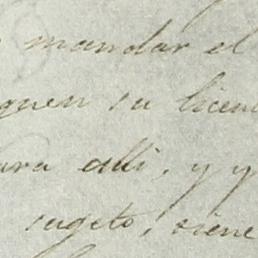 mandar el
guen su licen
ara alli, y y
sugeto, viene